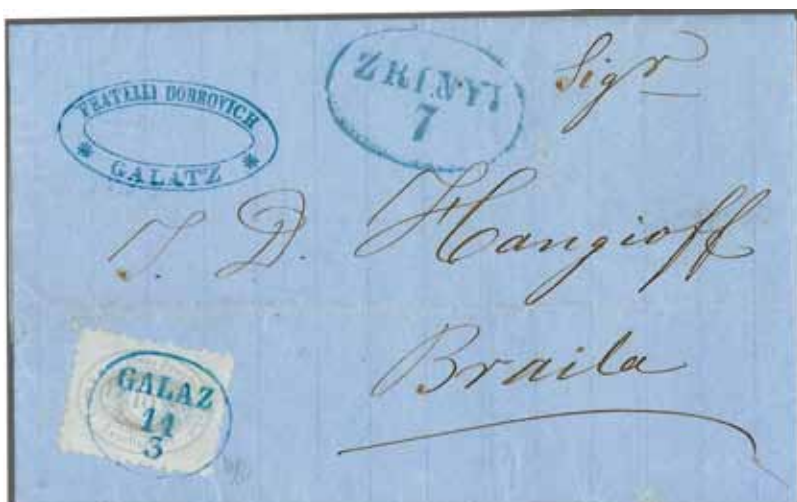 FRATELLI DOBROVICH
* GALATZ *
ZRINYI
7
Sigr
J. D. Hangioff
Braila
GALAZ
11
3